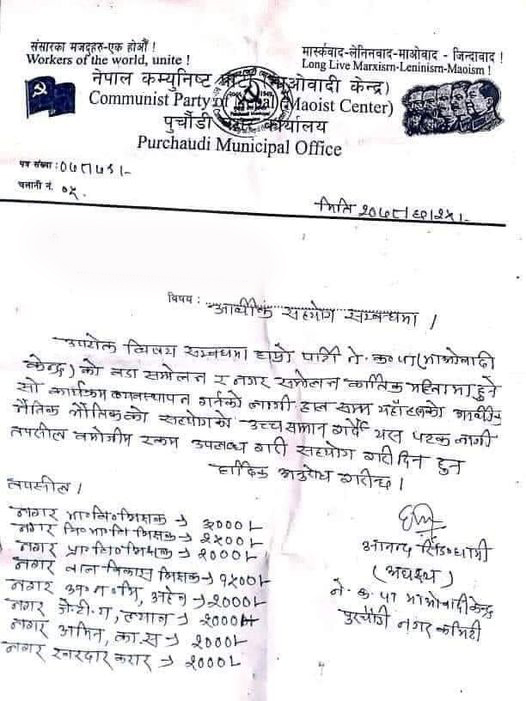 संसारका मजदुहरु-एक होऔं !
Workers of the world, unite !
मार्क्सवाद-लेनिनवाद-माओवाद - जिन्दावाद !
Long Live Marxism-Leninism-Maoism !
नेपाल कम्युनिष्ट (माओवादी केन्द्र)
Communist Party of Nepal (Maoist Center)
पुर्चौडी नगर कार्यालय
Purchaudi Municipal Office
पत्र संख्या : ०७८।७९।-
चलानी नं. ०५.
मिति २०७८।६।२५।-
विषय : आर्थीक सहयोग सम्बन्धमा ।
उपरोक्त विषय सम्बन्धमा हाम्रो पार्टी ने. क. पा (माओवादी
केन्द्र) को वडा सम्मेलन र नगर सम्मेलन कार्तिक महिनामा हुने
सो कार्यक्रम व्यवस्थापन गर्नको लागी हाल सम्म यहाँहरुको
नैतिक भौतिकको सहयोगको उच्च सम्मान गर्दै यस पटक लागी
तपसील बमोजीम रकम उपलब्ध गरी सहयोग गरीदिन हुन
हार्दिक अनुरोध गरीन्छ ।
तपसील ।
नगर ३००० ।-
नगर २५०० ।-
नगर २००० ।-
नगर बाल विकास शिक्षक → १५०० ।-
नगर २००० ।-
नगर २०००
नगर अमिन, का. स → २००० ।-
नगर करार → २००० ।-
आनन्द सिंह धामी
(अध्यक्ष)
ने. क. पा माओवादी केन्द्र
पुर्चौडी नगर कमिटी